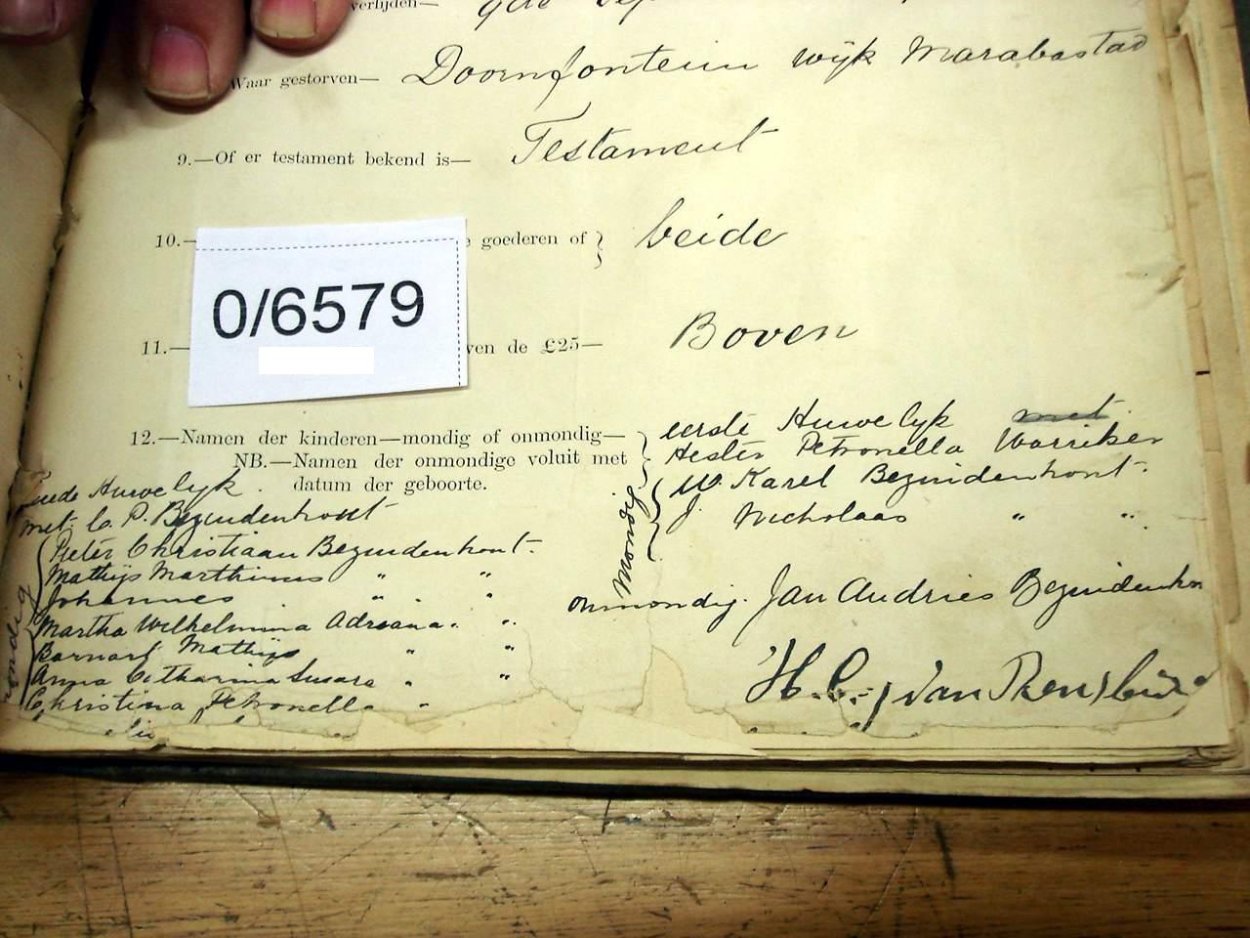 verlijden—
Waar gestorven— Doornfontein wijk Marabastad
9.—Of er testament bekend is— Testament
10.— goederen of } beide
0/6579
11.— ven de £25— Boven
12.—Namen der kinderen—mondig of onmondig—
NB.—Namen der onmondige voluit met
datum der geboorte.
eerste Huwelyk met
Hester Petronella Warriker
Mondig { W. Karel Bezuidenhout.
J. Nicholaas " "
onmondig. Jan Andries Bezuidenhou
H. C. J van Rensburg
Huwelyk.
met C. P. Bezuidenhout
Pieter Christiaan Bezuidenhout.
Mathijs Marthinus " "
Johannes " "
Martha Wilhelmina Adriana " "
Barnard Mathijs " "
Anna Catharina Susara " "
Christina Petronella "